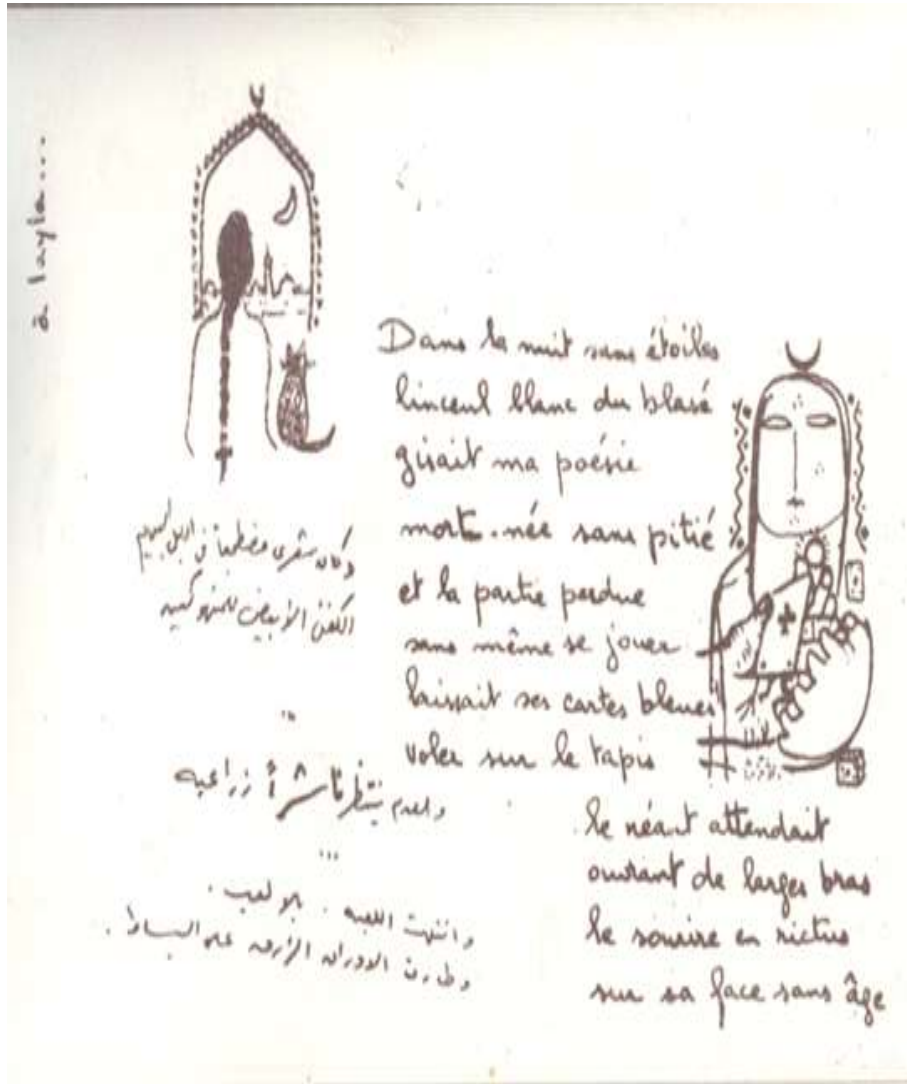 à layla...
Dans la nuit sans étoiles
linceul blanc du blasé
gisait ma poésie
mort-née sans pitié
et la partie perdue
sans même se jouer
laissait ses cartes bleues
voler sur le tapis
le néant attendait
ouvrant de larges bras
le sourire en rictus
sur sa face sans âge
وكان شعري
الكفن الأبيض
...
والعدم ينتظر ناشراً ذراعيه
...
وانتهت اللعبة . بلا لعب .
وطارت الاوراق الزرق على البساط .